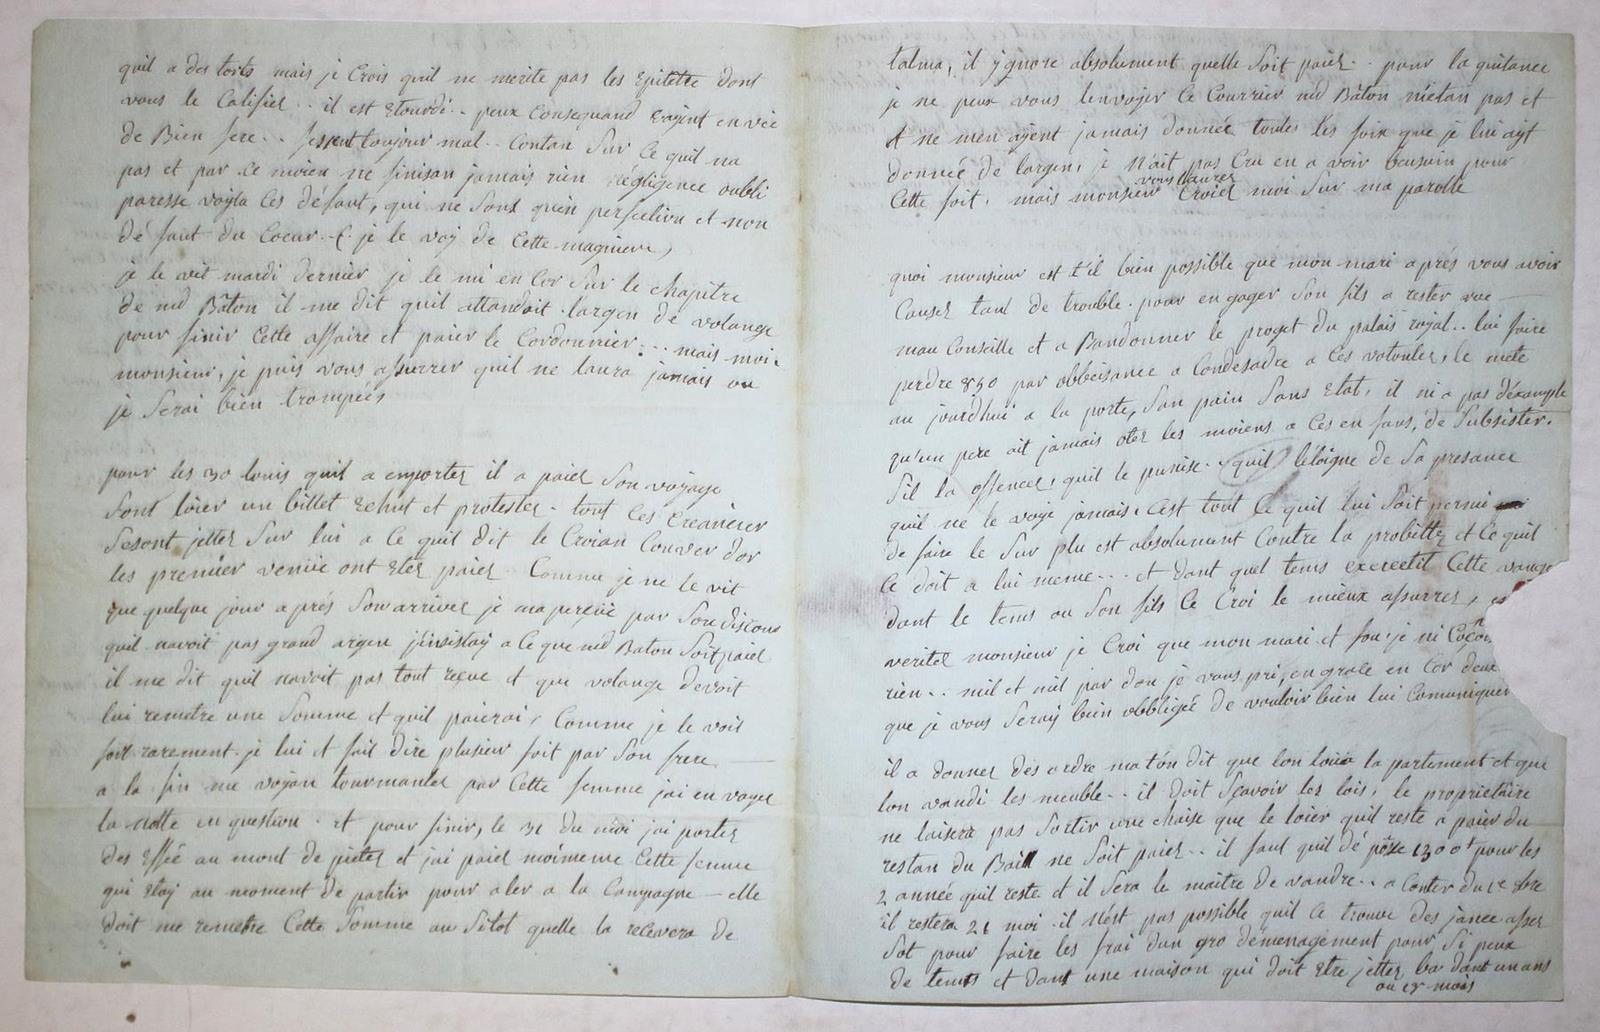 quil a des torts mais je Crois quil ne merite pas les Epitette dont
vous le Califier.. il est Etourdi.. peux Consequand Ezajint en vie
de Bien fere.. fesent toujour mal.. Contan Sur Ce quil na
pas et par Ce moien ne finisan jamais rien négligence oubli
paresse voyla Ces défaut, qui ne Sont quen perfection et non
dé faut du Coeur.. (. je le voy de Cette magniere)
je le vit mardi dernier je le mi en Cor Sur le chapitre
de md Bâton il me dit quil attandoit largen de volange
pour finir Cette affaire et paier le Cordonnier... mais moi.
monsieur, je puis vous assurrer quil ne laura jamais ou
je Serai bien trompéés
pour les 30 louis quil a emporter il a paier Son voyage
Sont loier un billet Echut et protester. tout Ces Creancier
Sesont jetter Sur lui a Ce quil dit le Croian Couver dor
les premier venue ont Eter paier.. Comme je ne le vit
que quelque jour aprés Son arriver je maperçue par Son discour
quil navoit pas grand argen jinsistay a Ce que md Baton Soit paier
il me dit quil navoit pas tout reçue et que volange devoit
lui remetre une Somme et quil paieroi, Comme je le voit
fort rarement. je lui et fait dire plusieur foit par Son frere
a la fin me voyan tourmanter par Cette femme jai en voyer
la notte en question. et pour finir, le 31 du moi jai porter
des Effée au mont de pieter et jai paier moimeme Cette femme
qui Etay au moment de partir pour aler a la Campagne — elle
doit me remetre Cette Somme au Sitot quelle la recevera de
talma, il ygnore absolument quelle Soit paier.. pour la quitance
je ne peux vous lenvoyer Ce Courrier md Bâton nietan pas et
et ne men ayent jamais donnée toutes les foix que je lui ayt
donnée de largen, je nait pas Cru en a voir beusoin pour
Cette foit. mais monsieur vous laurez Croier moi Sur ma parolle
quoi monsieur est t'il bien possible que mon mari aprés vous avoir
Causer tant de trouble. pour en gager Son fils a rester
mau Conseille et a Bandonner le proget du palais royal.. lui faire
perdre 850 par obbeisance a Condesadre a Ces volonter, le mete
au jourdhui a la porte, San pain Sans Etat, il ni a pas déxample
qu'un pere ait jamais oter les moiens a Ces en fans, de Subsister.
Sil la offencer, quil le punise.. quil léloigne de Sa presance
quil ne le voye jamais. Cest tout Ce quil lui Soit permi
de faire le Sur plu est absolument Contre la probitter et Ce quil
Ce doit a lui meme... et dant quel tems execectil Cette
dant le tems ou Son fils Ce Croi le mieux assurrer,
veriter monsieur je Croi que mon mari et fou. je ni
rien.. mil et mil par don je vous pri, en grace en Cor deux
que je vous Seray bien obbligée de vouloir bien lui Comuniquer
il a donner des ordre matón dit que lon loüa la partement et que
lon vandi les meuble.. il doit Sçavoir les lois, le propriétaire
ne laisera pas Sortir une chaise que le loier quil reste a paier du
restan du Baill ne Soit paier.. il faut quil dé poze 1300 # pour les
2 année quil reste et il Sera le maitre de vandre.. a Conter du 1e 8bre
il restera 21 moi. il nést pas possible quil Ce trouve des jance asser
Sot pour faire les frai dun gro déménagement pour Si peux
de tems et dant une maison qui doit Etre jetter ba dant un ans
ou 18 mois